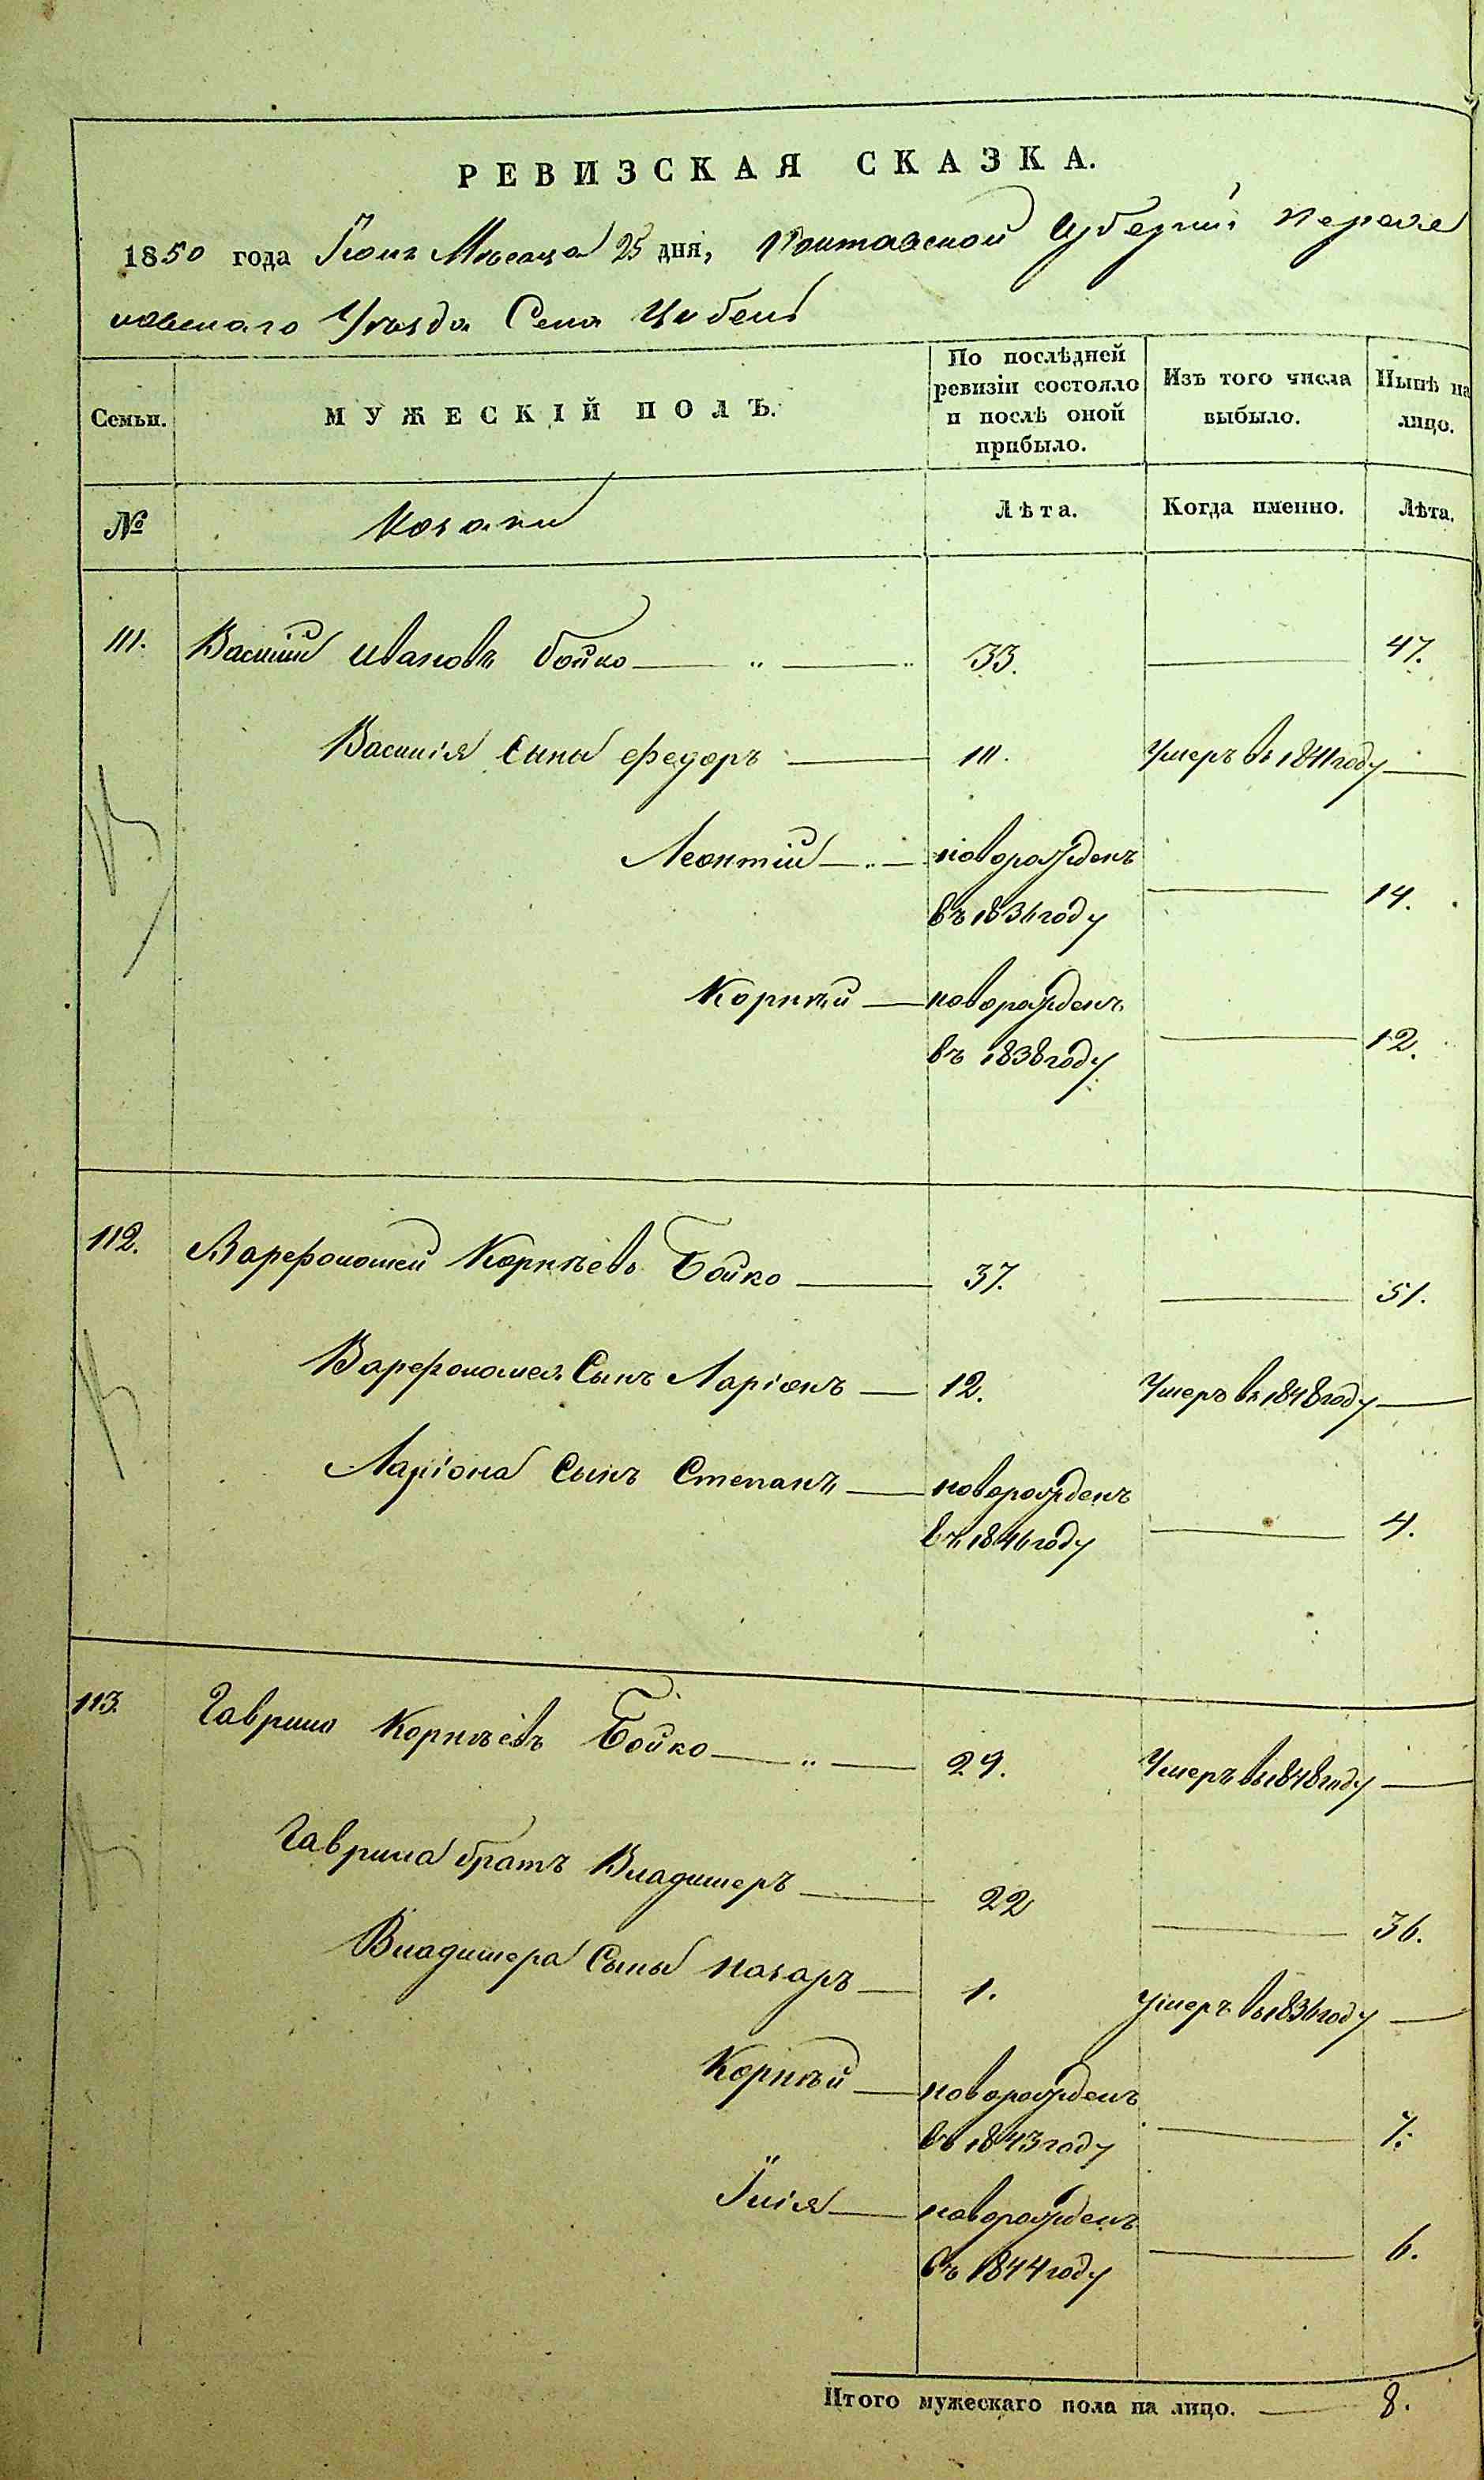 РЕВИЗСКАЯ СКАЗКА.
1850 года Июня Месяца 25 дня, Полтавской Губернии Перея
славскаго Уѣзда Села Цибель
Семьи. МУЖЕСКІЙ ПОЛЪ. По послѣдней ревизіи состояло и послѣ оной прибыло. Изъ того числа выбыло. Нынѣ на лицо.
№ Козаки Лѣта. Когда именно. Лѣта.
111. Василій Ивановъ Бойко 33. 47.
Василія Сыны Федоръ Умеръ въ 1841 году
Леонтій новорожденъ
въ 1836 году 14.
Корнѣй новорожденъ
въ 1838 году 12.
112. Варфоломей Корнѣевъ Бойко 37. 51.
Варфоломея Сынъ Ларіонъ 12. Умеръ въ 1848 году
Ларіона Сынъ Степанъ новорожденъ
въ 1846 году 4.
113. Гаврило Корнѣевъ Бойко 29. Умеръ въ 1848 году
Гаврила братъ Владимеръ 22 36.
Владимера Сыны Назаръ 1. Умеръ въ 1836 году
Корнѣй новорожденъ
въ 1843 году 7.
Илія новорожденъ
въ 1844 году 6.
Итого мужескаго пола на лицо. 8.